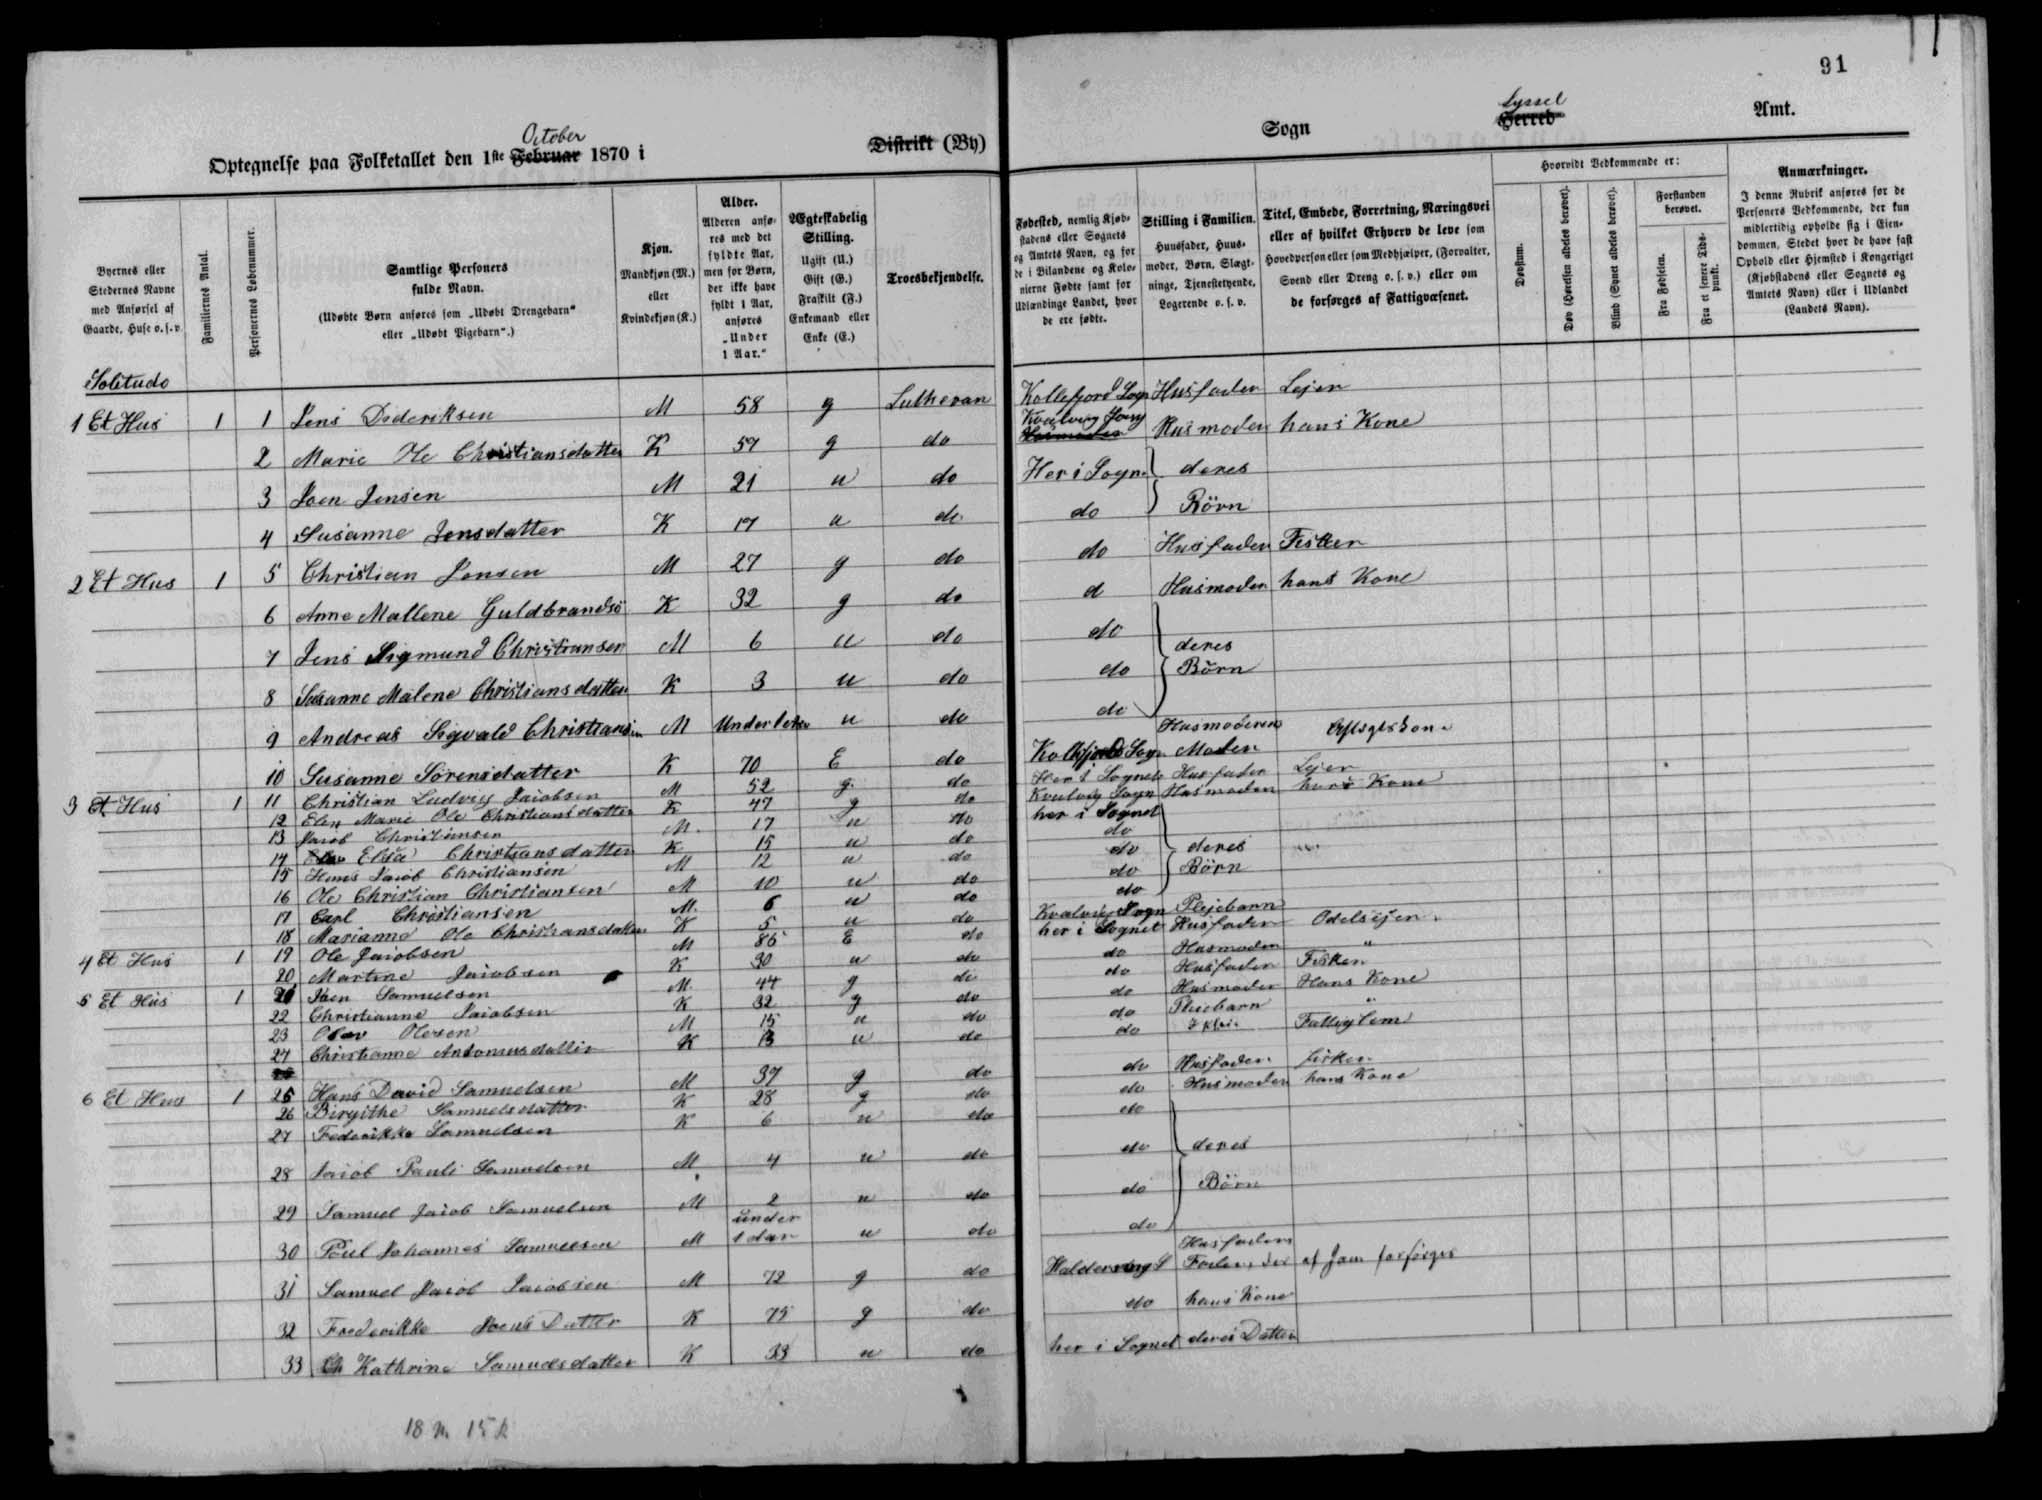 91
Optegnelse paa Folketallet den 1ste Februar October 1870 i Distrikt (By)
Sogn Herred Syssel Amt.
Byernes eller Stedernes Navne med Anførsel af Gaarde, Huse o. s. v.
Familiernes Antal.
Personernes Løbenummer.
Samtlige Personers fulde Navn.
(Udøbte Børn anføres som „Udøbt Drengebarn“ eller „Udøbt Pigebarn“.)
Kjøn.
Mandkjøn (M.) eller Kvindekjøn (K.)
Alder.
Alderen anføres med det fyldte Aar, men for Børn, der ikke have fyldt 1 Aar, anføres „Under 1 Aar.“
Ægteskabelig Stilling.
Ugift (U.) Gift (G.) Fraskilt (F.) Enkemand eller Enke (E.)
Troesbekjendelse.
Fødested, nemlig Kjøbstadens eller Sognets og Amtets Navn, og for de i Bilandene og Kolonierne Fødte samt for Udlændinge Landet, hvor de ere fødte.
Stilling i Familien.
Huusfader, Huusmoder, Børn, Slægtninge, Tjenestetyende, Logerende o. s. v.
Titel, Embede, Forretning, Næringsvei eller af hvilket Erhverv de leve som Hovedperson eller som Medhjælper, (Forvalter, Svend eller Dreng o. s. v.) eller om de forsørges af Fattigvæsenet.
Hvorvidt Vedkommende er:
Døvstum.
Døv (Hørelsen aldeles berøvet).
Blind (Synet aldeles berøvet).
Forstanden berøvet.
Fra Fødselen.
Fra et senere Tidspunkt.
Anmærkninger.
I denne Rubrik anføres for de Personers Vedkommende, der kun midlertidig opholde sig i Eiendommen, Stedet hvor de have fast Ophold eller Hjemsted i Kongeriget (Kjøbstadens eller Sognets og Amtets Navn) eller i Udlandet (Landets Navn).
Solitudo
1 Et Hus 1 1 Jens Dideriksen M 58 g Lutheran Kollefjord Sogn Husfader Lejer
2 Marie Ole Christiansdatter K 57 g do Kvalvig Sogn Husmoder hans Kone
3 Joen Jensen M 21 u do Her i Sogne deres
4 Susanne Jensdatter K 17 u do do Børn
2 Et Hus 1 5 Christian Jensen M 27 g do do Husfader Fisker
6 Anne Mallene Guldbrandsd K 32 g do d Husmoder hans Kone
7 Jens Sigmund Christiansen M 6 u do do deres
8 Susanne Malene Christiansdatter K 3 u do do Børn
9 Andreas Sigvald Christiansen M Under 1 u do do
10 Susanne Sørensdatter K 70 E do Kollefjords Sogn Husmoderens Moder
3 Et Hus 1 11 Christian Ludvig Jacobsen M 52 g do Her i Sognet Husfader Lejer
12 Elen Marie Ole Christiansdatter K 47 g do Kvalvig Sogn Husmoder hans Kone
13 Jacob Christiansen M. 17 u do her i Sognet
14 Elsa Christiansdatter K 15 u do do deres
15 Hans Jacob Christiansen M 12 u do do Børn
16 Ole Christian Christiansen M 10 u do do
17 Carl Christiansen M. 6 u do do
18 Marianne Ole Christiansdatter K 5 u do Kvalvig Sogn Plejebarn
4 Et Hus 1 19 Ole Jacobsen M 86 E do her i Sognet Husfader Odelsejer
20 Martine Jacobsen K 30 u do do Husmoder "
5 Et Hus 1 21 Joen Samuelsen M 44 g do do Husfader Fisker
22 Christianne Jacobsen K 32 g do do Husmoder Hans Kone
23 Olesen M 15 u do do Plejebarn "
24 Christianne Antoniusdatter K 13 u do do Fattiglem
6 Et Hus 1 25 Hans David Samuelsen M 37 g do do Husfader fisker
26 Birgithe Samuelsdatter K 28 g do do Husmoder hans Kone
27 Frederikke Samuelsen K 6 u do do
28 Jacob Pauli Samuelsen M 4 u do do deres
29 Samuel Jacob Samuelsen M 2 u do do Børn
30 Poul Johannes Samuelsen M under 1 Aar u do do
31 Samuel Jacob Jacobsen M 72 g do Haldersvig S Husfaders Fader, der af ham forsørges
32 Frederikke Joensdatter K 75 g do do hans Kone
33 Kathrine Samuelsdatter K 33 u do her i Sognet deres Datter
18 M. 15 K